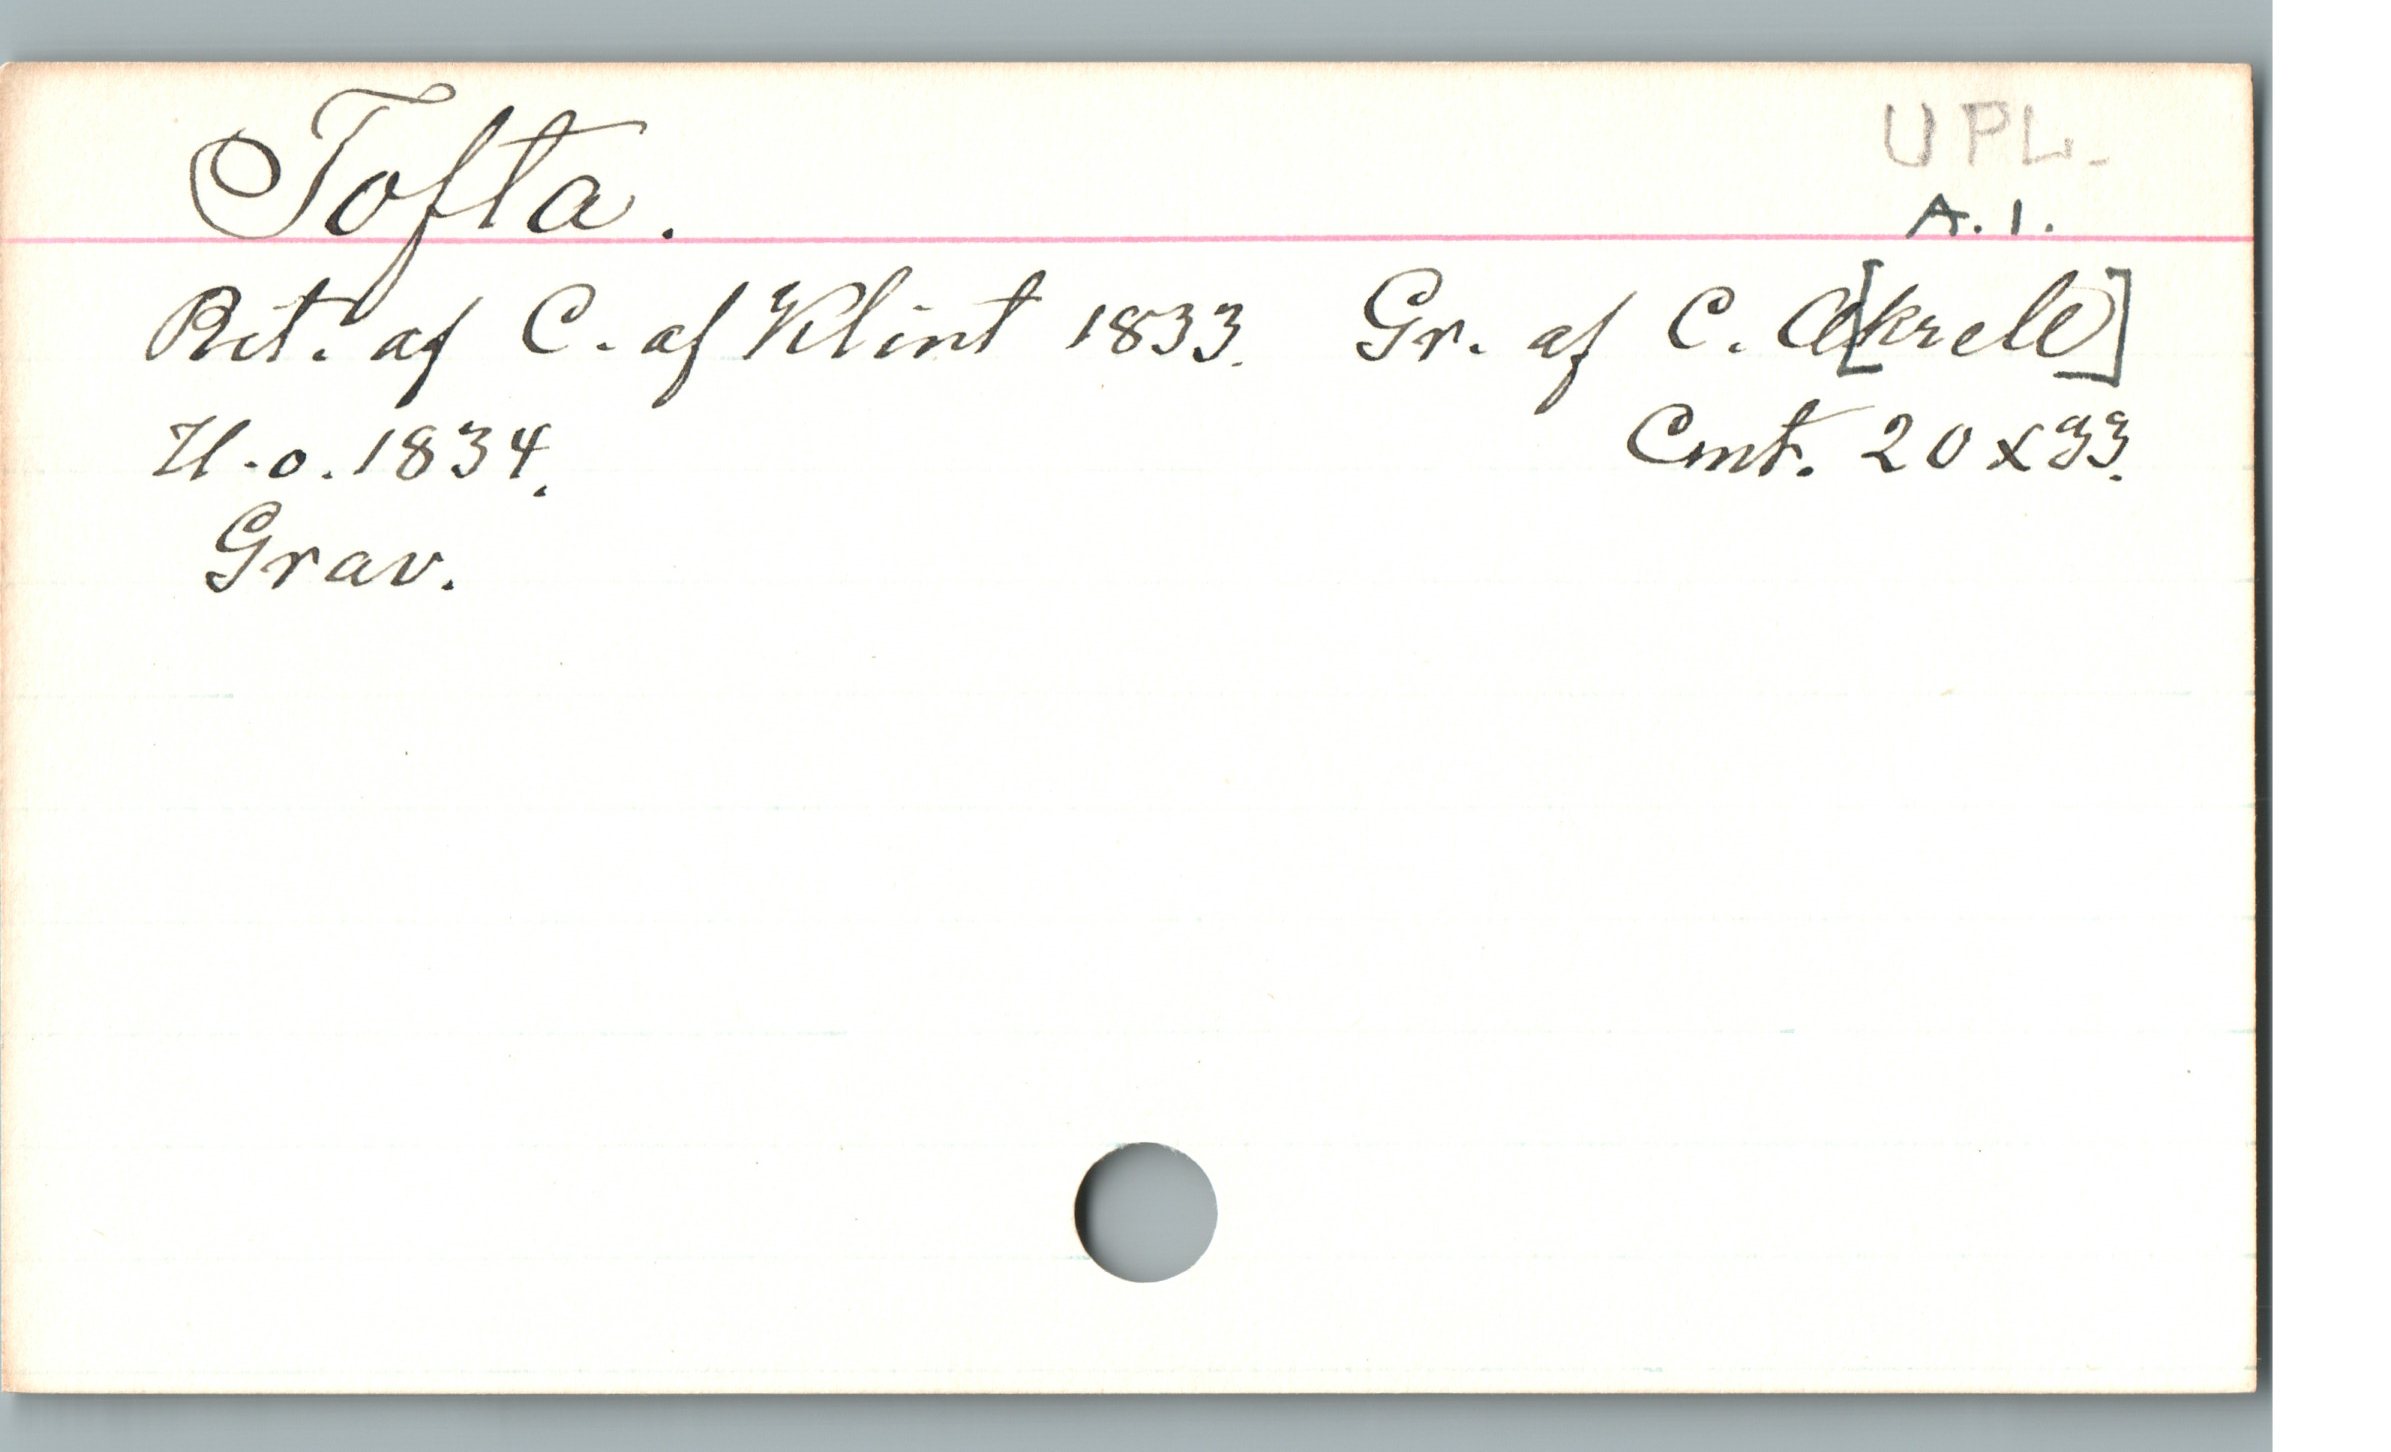 Tofta.
UPL.
A. 1.
Rit. af C. af Klint 1833. Gr. af C. A[krell]
U. o. 1834. Cmt. 20 x 33.
Grav.